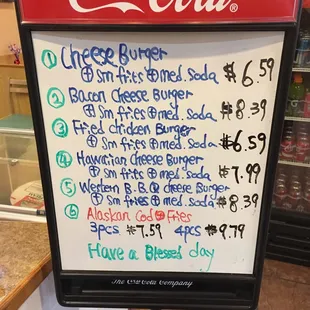 Coca-Cola ®
① Cheese Burger
⊕ Sm fries ⊕ med. soda $6.59
② Bacon Cheese Burger
⊕ Sm fries ⊕ med. soda $8.39
③ Fried chicken Burger
⊕ Sm fries ⊕ med. soda $6.59
④ Hawaiian Cheese Burger
⊕ Sm fries ⊕ med. soda $7.99
⑤ Western B.B.Q cheese Burger
⊕ Sm fries ⊕ med. soda $8.39
⑥ Alaskan Cod ⊕ Fries
3pcs $7.59 4pcs $9.79
Have a Blessed day
The Coca-Cola Company